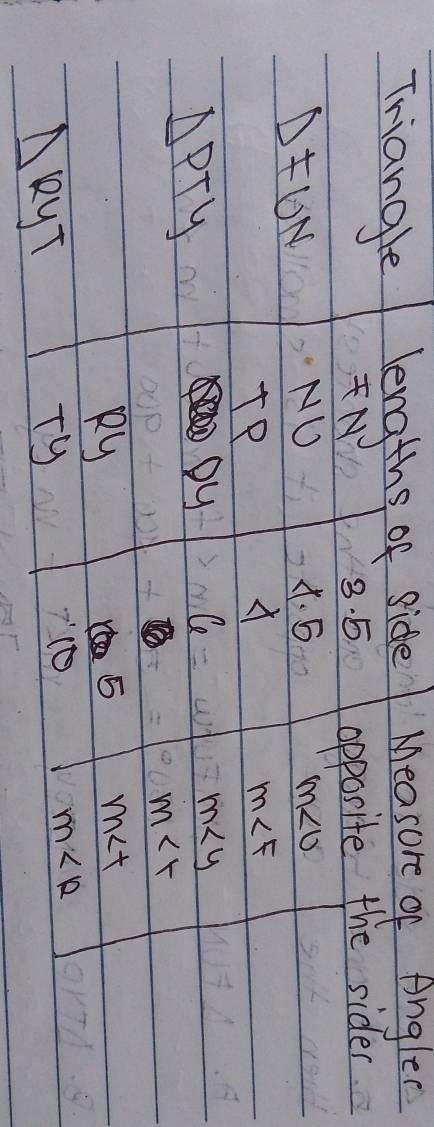 Triangle lengths of side Measure of Angles
opposite the sides
FN 3.5 m<U
Δ FUN NU 4.5 m<F
TP 4 m<y
Δ PTy Py 6 m<t
Ry 5 m<t
Δ RyT Ty 10 m<R